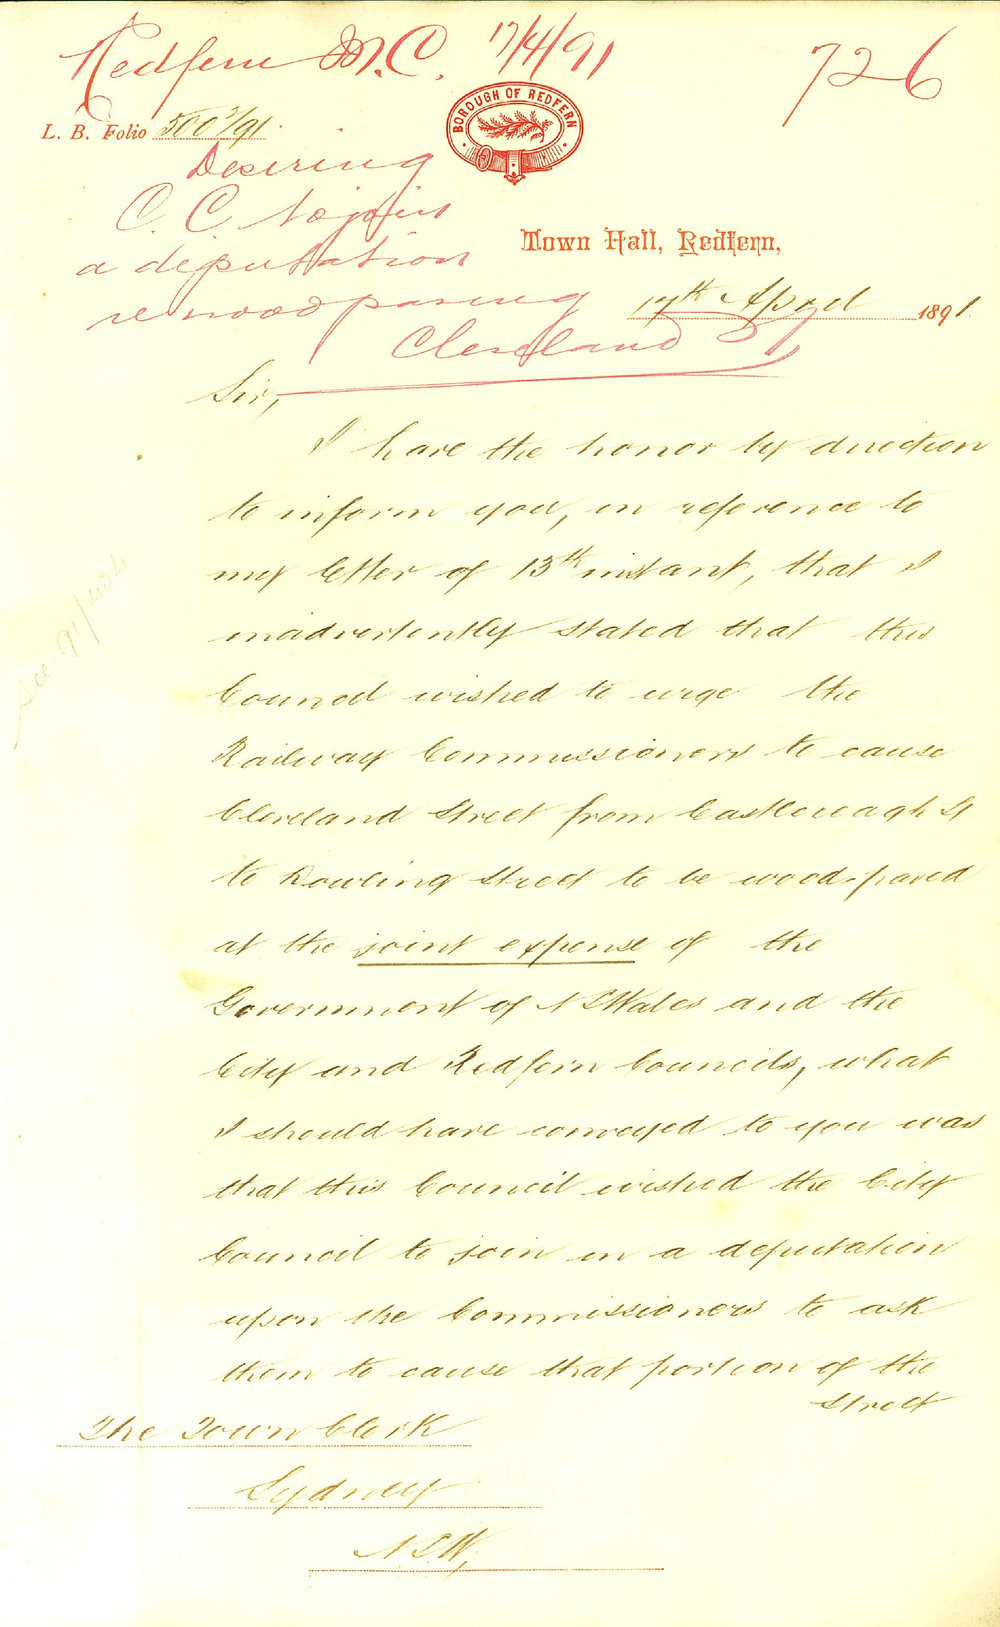 Redfern M.C. 17/4/91
726
BOROUGH OF REDFERN
L. B. Folio 500 2/91.
Desiring
C. C. to join
a deputation
re wood paving
Cleveland St
Town Hall, Redfern,
17th April 1891.
Sir,
I have the honor by direction
to inform you, in reference to
my letter of 13th instant, that I
inadvertently stated that this
Council wished to urge the
Railway Commissioners to cause
Cleveland Street from Castlereagh St
to Dowling Street to be wood-paved
at the joint expense of the
Government of N S Wales and the
City and Redfern Councils, what
I should have conveyed to you was
that this Council wished the City
Council to join in a deputation
upon the Commissioners to ask
them to cause that portion of the
Street
The Town Clerk
Sydney
N.S.W,
See 91/